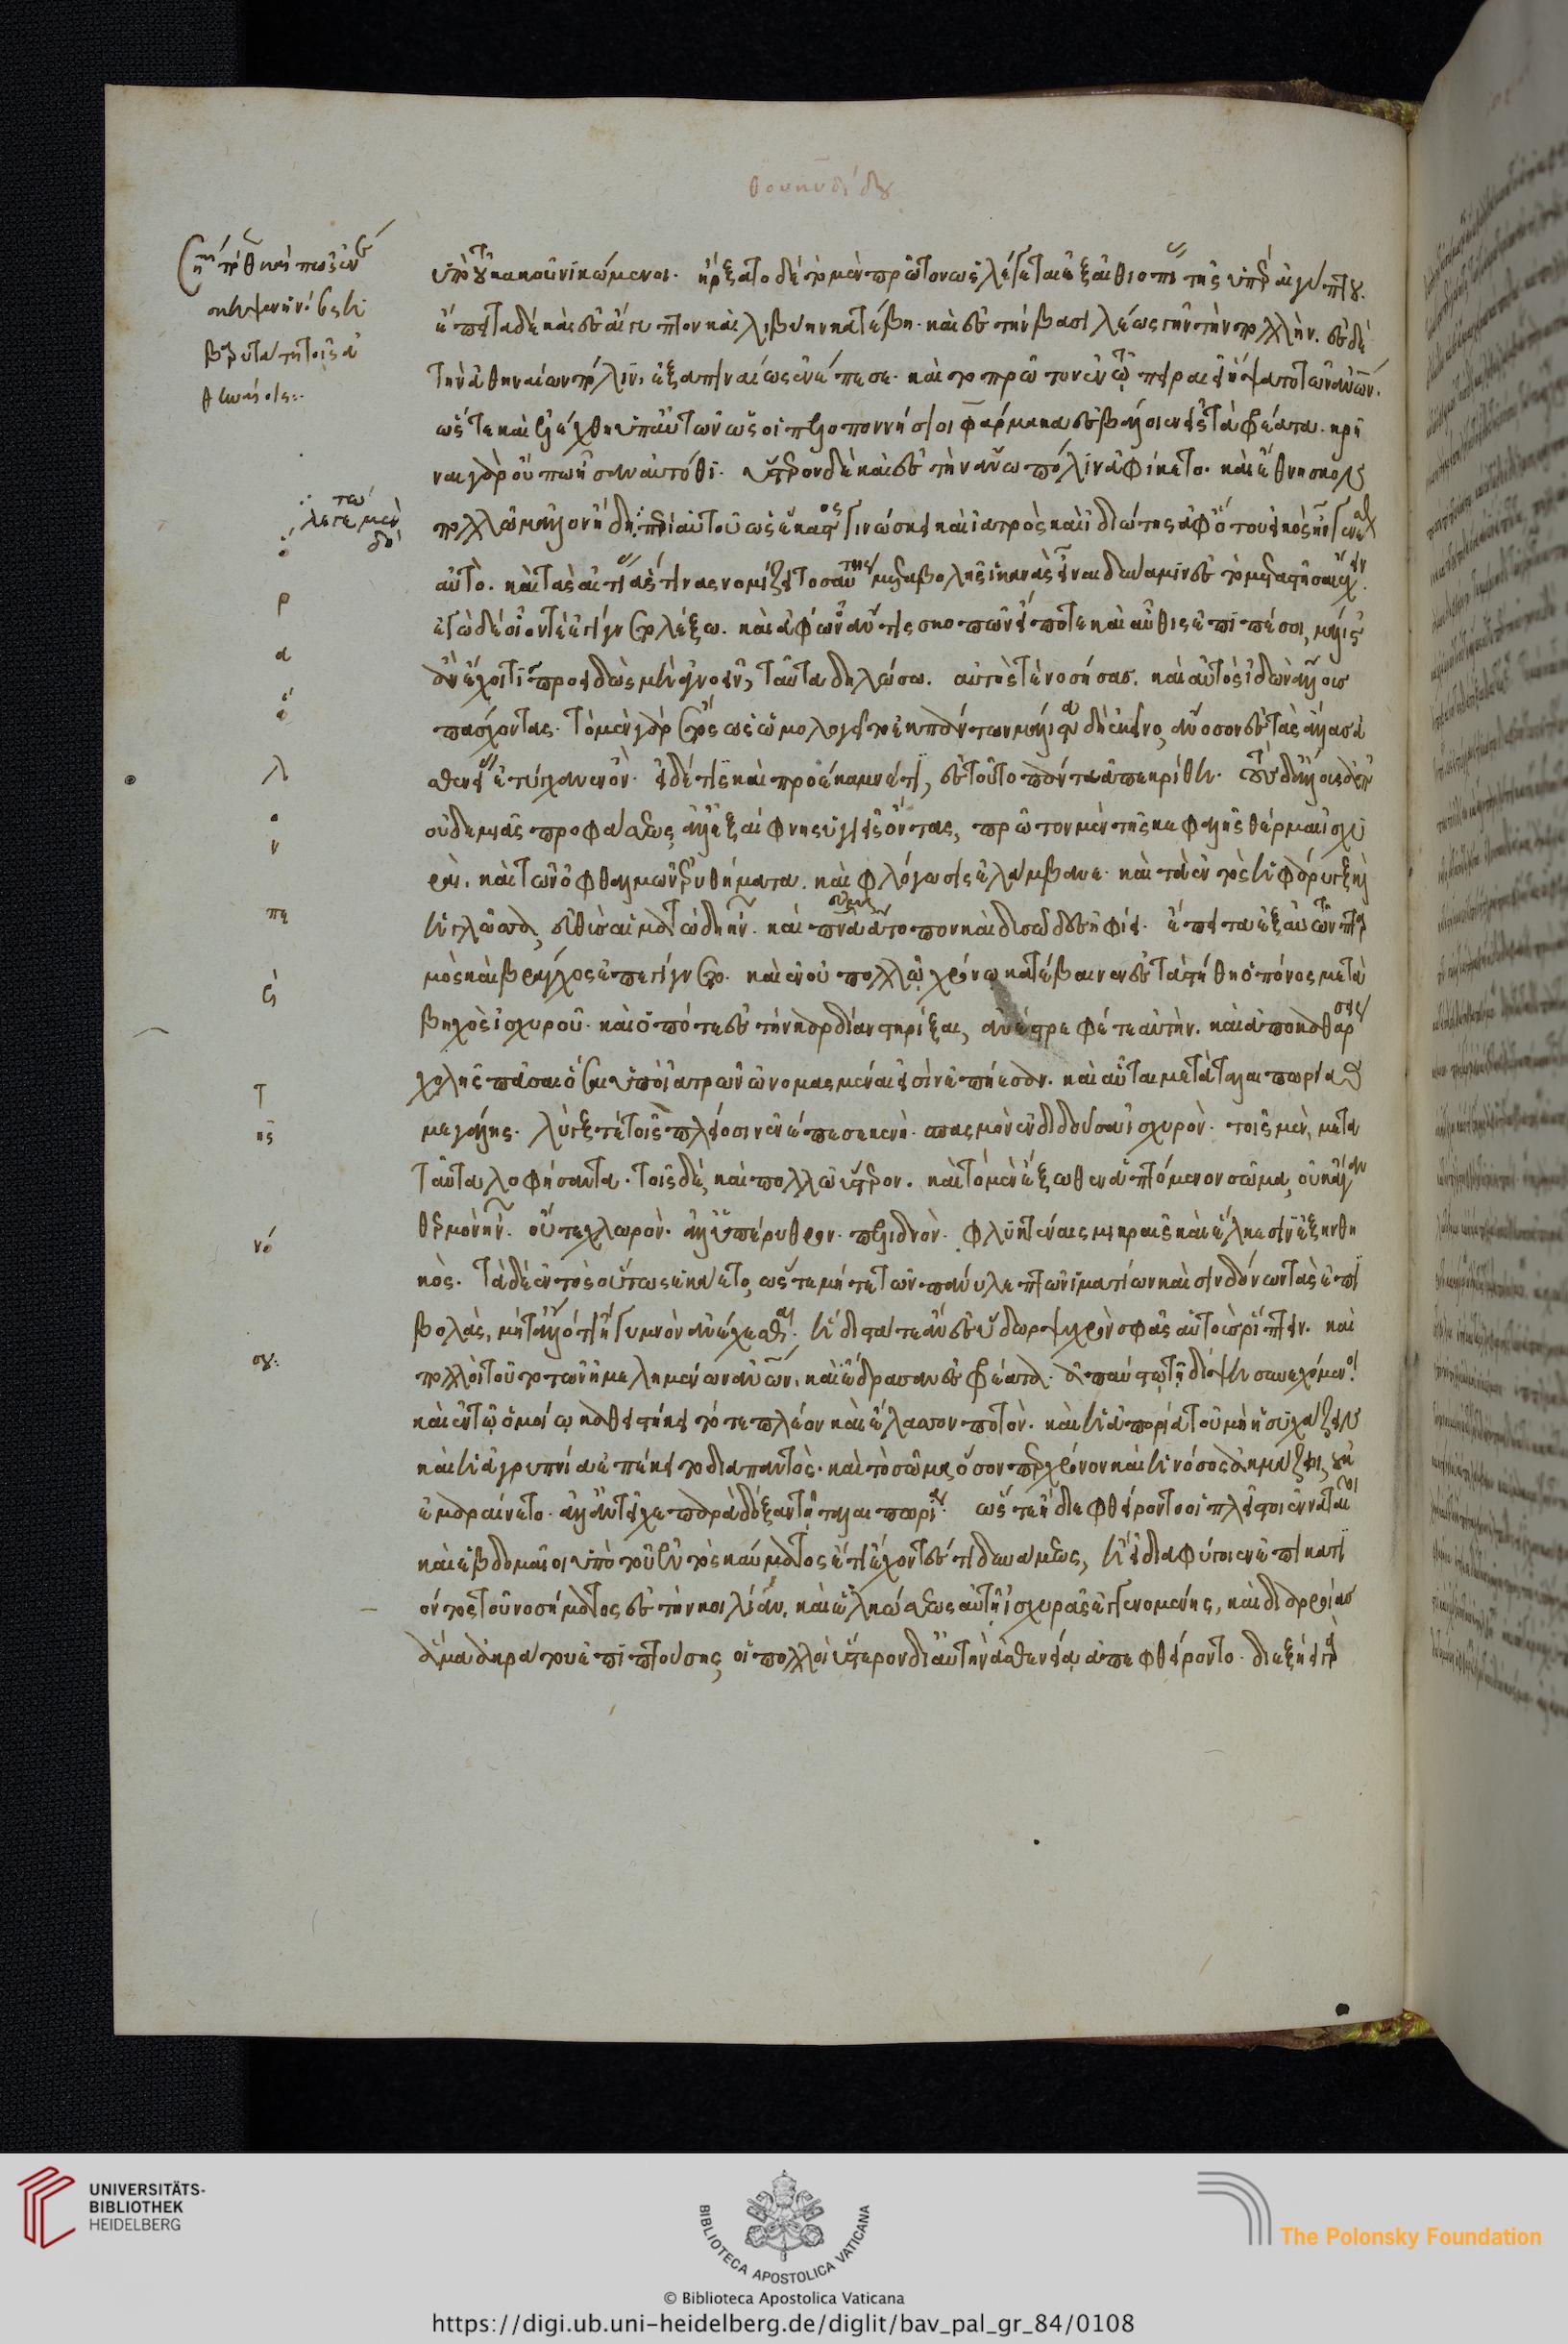 θουκυδίδου
ὑπὸ τοῦ κακοῦ νικώμενοι. ἤρξατο δὲ τὸ μὲν πρῶτον ὡς λέγεται ἐξ αἰθιοπίας τῆς ὑπὲρ αἰγύπτου.
ἔπειτα δὲ καὶ ἐς αἴγυπτον καὶ λιβύην κατέβη. καὶ ἐς τὴν βασιλέως γῆν τὴν πολλήν. ἐς δὲ
τὴν ἀθηναίων πόλιν, ἐξαπιναίως ἐνέπεσε. καὶ τὸ πρῶτον ἐν τῷ πειραιεῖ ἥψατο τῶν ἀνθρώπων.
ὥστε καὶ ἐλέχθη ὑπ' αὐτῶν ὡς οἱ πελοποννήσιοι φάρμακα ἐσβάλοιεν ἐς τὰ φρέατα. κρῆ
ναι γὰρ οὔπω ἦσαν αὐτόθι. ὕστερον δὲ καὶ ἐς τὴν ἄνω πόλιν ἀφίκετο. καὶ ἔθνησκον
πολλῷ μᾶλλον ἤδη. λεγέτω μὲν οὖν περὶ αὐτοῦ ὡς ἕκαστος γινώσκει καὶ ἰατρὸς καὶ ἰδιώτης ἀφ' ὅτου εἰκὸς ἦν γενέσθαι
αὐτό. καὶ τὰς αἰτίας ἅστινας νομίζει τοσαύτης μεταβολῆς ἱκανὰς εἶναι δύναμιν ἐς τὸ μεταστῆσαι σχεῖν.
ἐγὼ δὲ οἷόν τε ἐγίγνετο λέξω. καὶ ἀφ' ὧν ἄν τις σκοπῶν εἴ ποτε καὶ αὖθις ἐπιπέσοι, μάλιστ'
ἂν ἔχοι τι προειδὼς μὴ ἀγνοεῖν, ταῦτα δηλώσω. αὐτός τε νοσήσας. καὶ αὐτὸς ἰδὼν ἄλλους
πάσχοντας. τὸ μὲν γὰρ ἔτος ὡς ὡμολογεῖτο ἐκ πάντων μάλιστα δὴ ἐκεῖνο, ἄνοσον ἐς τὰς ἄλλας ἀ
σθενείας ἐτύγχανεν ὄν. εἰ δέ τις καὶ προέκαμνέ τι, ἐς τοῦτο πάντα ἀπεκρίθη. τοὺς δ' ἄλλους ἀπ'
οὐδεμιᾶς προφάσεως, ἀλλ' ἐξαίφνης ὑγιεῖς ὄντας, πρῶτον μὲν τῆς κεφαλῆς θέρμαι ἰσχυ
ραὶ. καὶ τῶν ὀφθαλμῶν ἐρυθήματα. καὶ φλόγωσις ἐλάμβανε. καὶ τὰ ἐντὸς ἡ φάρυγξ καὶ
ἡ γλῶσσα, εὐθὺς αἱματώδη ἦν. καὶ πνεῦμα ἄτοπον καὶ δυσῶδες ἠφίει. ἔπειτα ἐξ αὐτῶν πταρ
μὸς καὶ βράγχος ἐπεγίγνετο. καὶ ἐν οὐ πολλῷ χρόνῳ κατέβαινεν ἐς τὰ στήθη ὁ πόνος μετὰ
βηχὸς ἰσχυροῦ. καὶ ὁπότε ἐς τὴν καρδίαν στηρίξαι, ἀνέστρεφέ τε αὐτήν. καὶ ἀποκαθάρσεις
χολῆς πᾶσαι ὅσαι ὑπὸ ἰατρῶν ὠνομασμέναι εἰσὶν ἐπῄεσαν. καὶ αὗται μετὰ ταλαιπωρίας
μεγάλης. λύγξ τε τοῖς πλείοσιν ἐνέπεσε κενή. σπασμὸν ἐνδιδοῦσα ἰσχυρόν. τοῖς μὲν, μετὰ
ταῦτα λοφήσαντα. τοῖς δὲ, καὶ πολλῷ ὕστερον. καὶ τὸ μὲν ἔξωθεν ἁπτόμενον σῶμα, οὐκ ἄγαν
θερμὸν ἦν. οὔτε χλωρόν. ἀλλ' ὑπέρυθρον. πελιδνόν. φλυκταίναις μικραῖς καὶ ἕλκεσιν ἐξηνθη
κός. τὰ δὲ ἐντὸς οὕτως ἐκαίετο, ὥστε μήτε τῶν πάνυ λεπτῶν ἱματίων καὶ σινδόνων τὰς ἐπι
βολὰς, μήτ' ἄλλό τι ἢ γυμνὸν ἀνέχεσθαι. ἥδιστά τε ἂν ἐς ὕδωρ ψυχρὸν σφᾶς αὐτοὺς ῥίπτειν. καὶ
πολλοὶ τοῦτο τῶν ἠμελημένων ἀνθρώπων. καὶ ἔδρασαν ἐς φρέατα. ἀπαύστῳ τῇ δίψῃ συνεχόμενοι
καὶ ἐν τῷ ὁμοίῳ καθειστήκει τό τε πλέον καὶ ἔλασσον ποτόν. καὶ ἡ ἀπορία τοῦ μὴ ἡσυχάζειν
καὶ ἡ ἀγρυπνία ἐπέκειτο διὰ παντός. καὶ τὸ σῶμα, ὅσον περ χρόνον καὶ ἡ νόσος ἀκμάζοι, οὐκ
ἐμαραίνετο. ἀλλ' ἀντεῖχε παρὰ δόξαν τῇ ταλαιπωρίᾳ. ὥστε ἢ διεφθείροντο οἱ πλεῖστοι ἐνναταῖοι
καὶ ἑβδομαῖοι ὑπὸ τοῦ ἐντὸς καύματος ἔτι ἔχοντές τι δυνάμεως, ἢ εἰ διαφύγοιεν ἐπικατι
όντος τοῦ νοσήματος ἐς τὴν κοιλίαν. καὶ ἑλκώσεως αὐτῇ ἰσχυρᾶς ἐγγενομένης, καὶ διαρροίας
ἅμα ἀκράτου ἐπιπιπτούσης, οἱ πολλοὶ ὕστερον δι' αὐτὴν ἀσθενείᾳ ἀπεφθείροντο. διεξῄει γὰρ
λεγέτω μὲν
π
α
ρ
ά
λ
ο
ι
π
ε
τ
ῆς
νό
σου:
UNIVERSITÄTS-
BIBLIOTHEK
HEIDELBERG
BIBLIOTECA APOSTOLICA VATICANA
The Polonsky Foundation
© Biblioteca Apostolica Vaticana
https://digi.ub.uni-heidelberg.de/diglit/bav_pal_gr_84/0108